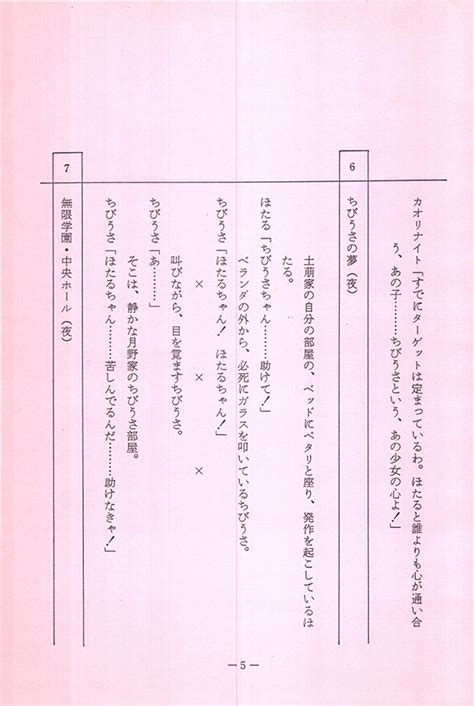 カオリナイト「すでにターゲットは定まっているわ。ほたると誰よりも心が通い合
う、あの子………ちびうさという、あの少女の心よ！」
6
ちびうさの夢（夜）
土萠家の自分の部屋の、ベッドにペタリと座り、発作を起こしているほ
たる。
ほたる「ちびうさちゃん………助けて！」
ベランダの外から、必死にガラスを叩いているちびうさ。
ちびうさ「ほたるちゃん！　ほたるちゃん！」
×　×　×
叫びながら、目を覚ますちびうさ。
ちびうさ「あ………」
そこは、静かな月野家のちびうさ部屋。
ちびうさ「ほたるちゃん………苦しんでるんだ………助けなきゃ！」
7
無限学園・中央ホール（夜）
—5—